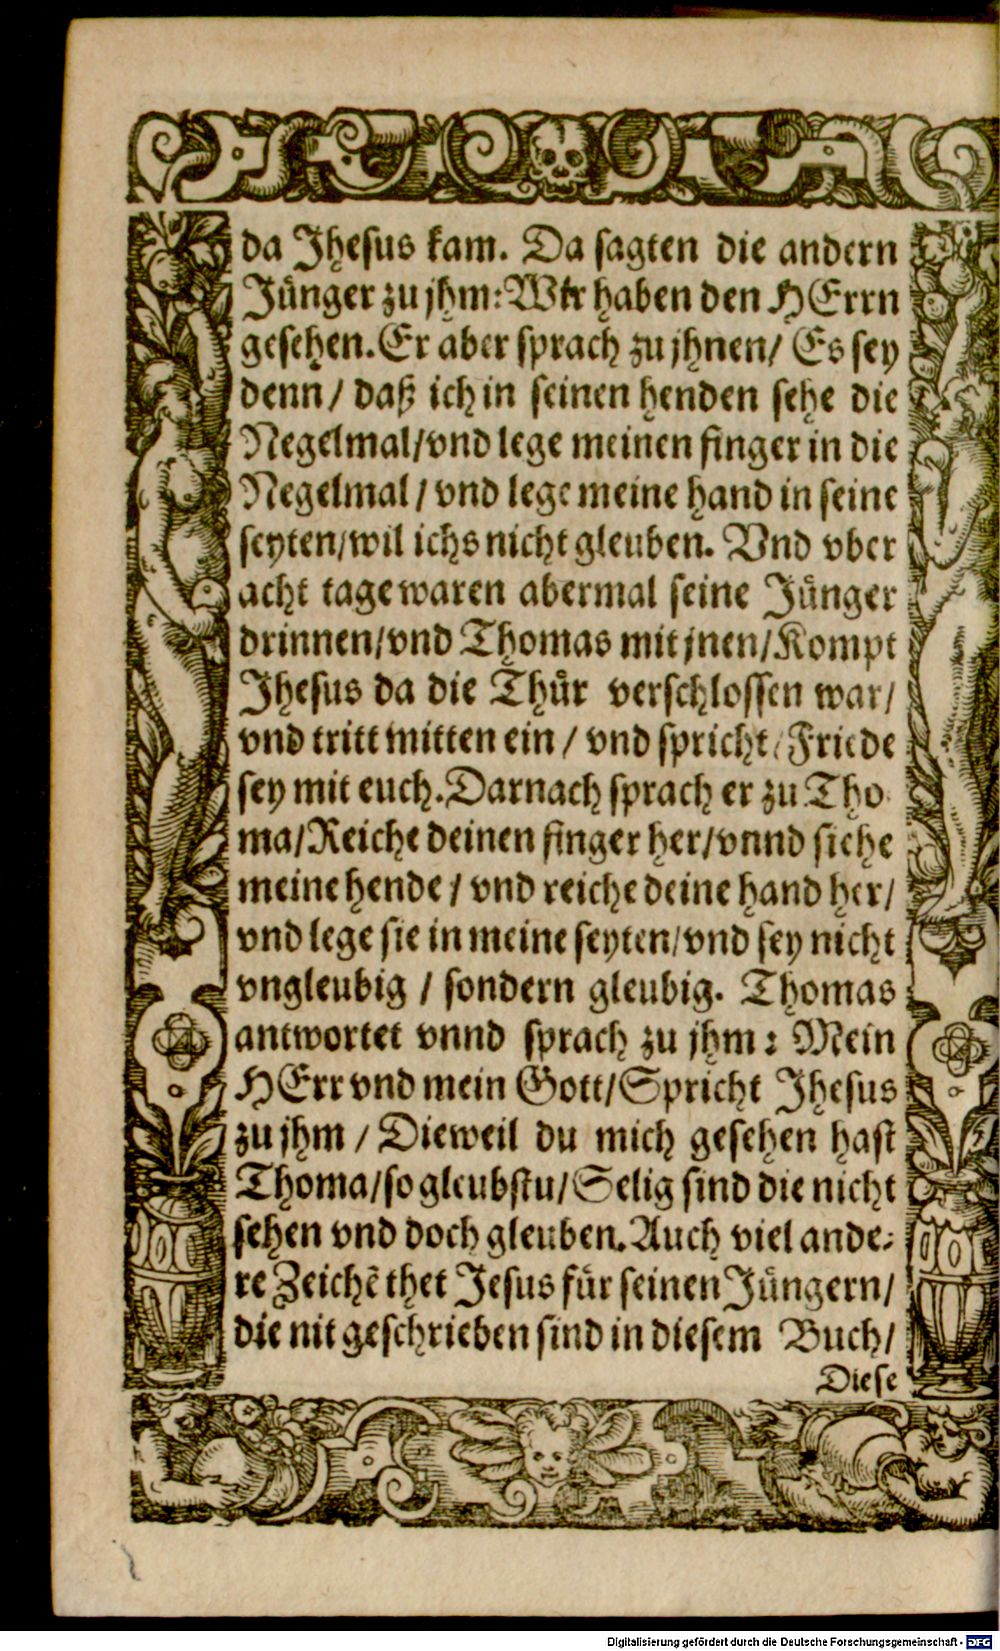 da Jhesus kam. Da sagten die andern
Jünger zu jhm: Wir haben den HErrn
gesehen. Er aber sprach zu jhnen/ Es sey
denn/ daß ich in seinen henden sehe die
Negelmal/vnd lege meinen finger in die
Negelmal/ vnd lege meine hand in seine
seyten/wil ichs nicht gleuben. Vnd vber
acht tage waren abermal seine Jünger
drinnen/vnd Thomas mit jnen/Kompt
Jhesus da die Thür verschlossen war/
vnd tritt mitten ein/ vnd spricht/Friede
sey mit euch. Darnach sprach er zu Tho
ma/Reiche deinen finger her/vnnd siehe
meine hende/ vnd reiche deine hand her/
vnd lege sie in meine seyten/vnd sey nicht
vngleubig/ sondern gleubig. Thomas
antwortet vnnd sprach zu jhm: Mein
HErr vnd mein Gott/Spricht Jhesus
zu jhm/ Dieweil du mich gesehen hast
Thoma/so gleubstu/Selig sind die nicht
sehen vnd doch gleuben. Auch viel ande-
re Zeichẽ thet Jesus für seinen Jüngern/
die nit geschrieben sind in diesem Buch/
Diese
Digitalisierung gefördert durch die Deutsche Forschungsgemeinschaft - DFG